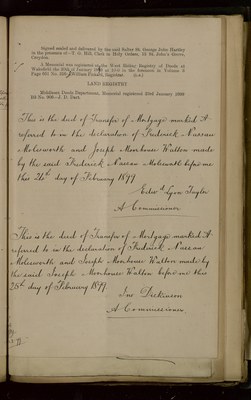 Signed sealed and delivered by the said Esther St. George John Hartley
in the presence of—T. G. Hill, Clerk in Holy Orders, St. John's Grove,
Croydon
A Memorial was registered at the West Riding Registry of Deeds at
Wakefield the 30th of January in the forenoon in Volume 3
Page 601 No. William Registrar
LAND REGISTRY
Middlesex Deeds Department, Memorial registered 23rd January 1899
J. D. Dart.
This is the deed of Transfer of Mortgage marked A
referred to in the declaration of Frederick Nassau
Molesworth and Joseph Morehouse Walton made
by the said Frederick Nassau Molesworth before me
this day of February 1899
Edwd. Lyon Taylor
A Commissioner
This is the deed of Transfer of Mortgage marked A
referred to in the declaration of Frederick Nassau
Molesworth and Joseph Morehouse Walton made by
the said Joseph Morehouse Walton before me this
25th day of February 1899.
Jno Dickinson
A Commissioner.